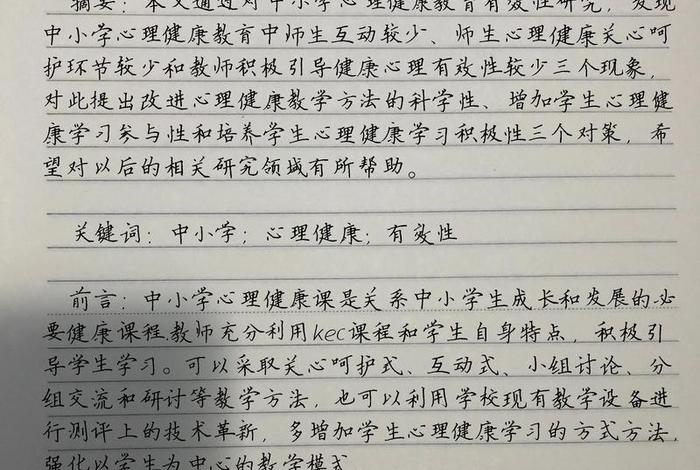 摘要：本文通过对中小学心理健康教育有效性研究，发现
中小学心理健康教育中师生互动较少、师生心理健康关心呵
护环节较少和教师积极引导健康心理有效性较少三个现象，
对此提出改进心理健康教学方法的科学性、增加学生心理健
康学习参与性和培养学生心理健康学习积极性三个对策，希
望对以后的相关研究领域有所帮助。
关键词：中小学；心理健康；有效性
前言：中小学心理健康课是关系中小学生成长和发展的必
要健康课程.教师充分利用kec课程和学生自身特点，积极引
导学生学习。可以采取关心呵护式、互动式、小组讨论、分
组交流和研讨等教学方法，也可以利用学校现有教学设备进
行测评上的技术革新，多增加学生心理健康学习的方式方法，
强化以学生为中心的教学模式